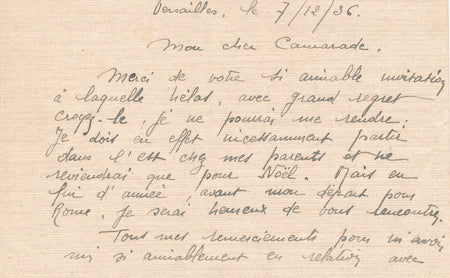 Versailles, le 7/12/36.
Mon cher Camarade.
Merci de votre si aimable invitation
à laquelle hélas, avec grand regret
croyez-le, je ne pourrai me rendre.
Je dois en effet incessamment partir
dans l'est chez mes parents et ne
reviendrai que pour Noël. Mais en
fin d'année, avant mon départ pour
Rome, je serai heureux de vous rencontrer.
Tous mes remerciements pour m'avoir
mis si aimablement en relation avec